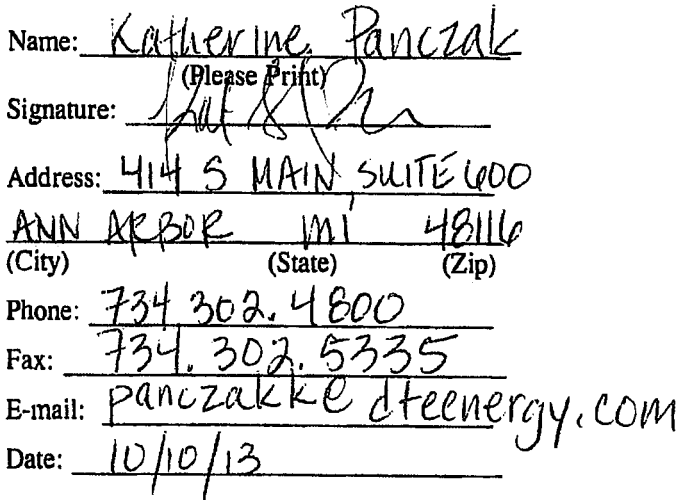 Name: Katherine Panczak
(Please Print)
Signature:
Address: 414 S MAIN, SUITE 600
ANN ARBOR MI 48116
(City) (State) (Zip)
Phone: 734 302.4800
Fax: 734.302.5335
E-mail: panczakk@dteenergy.com
Date: 10/10/13